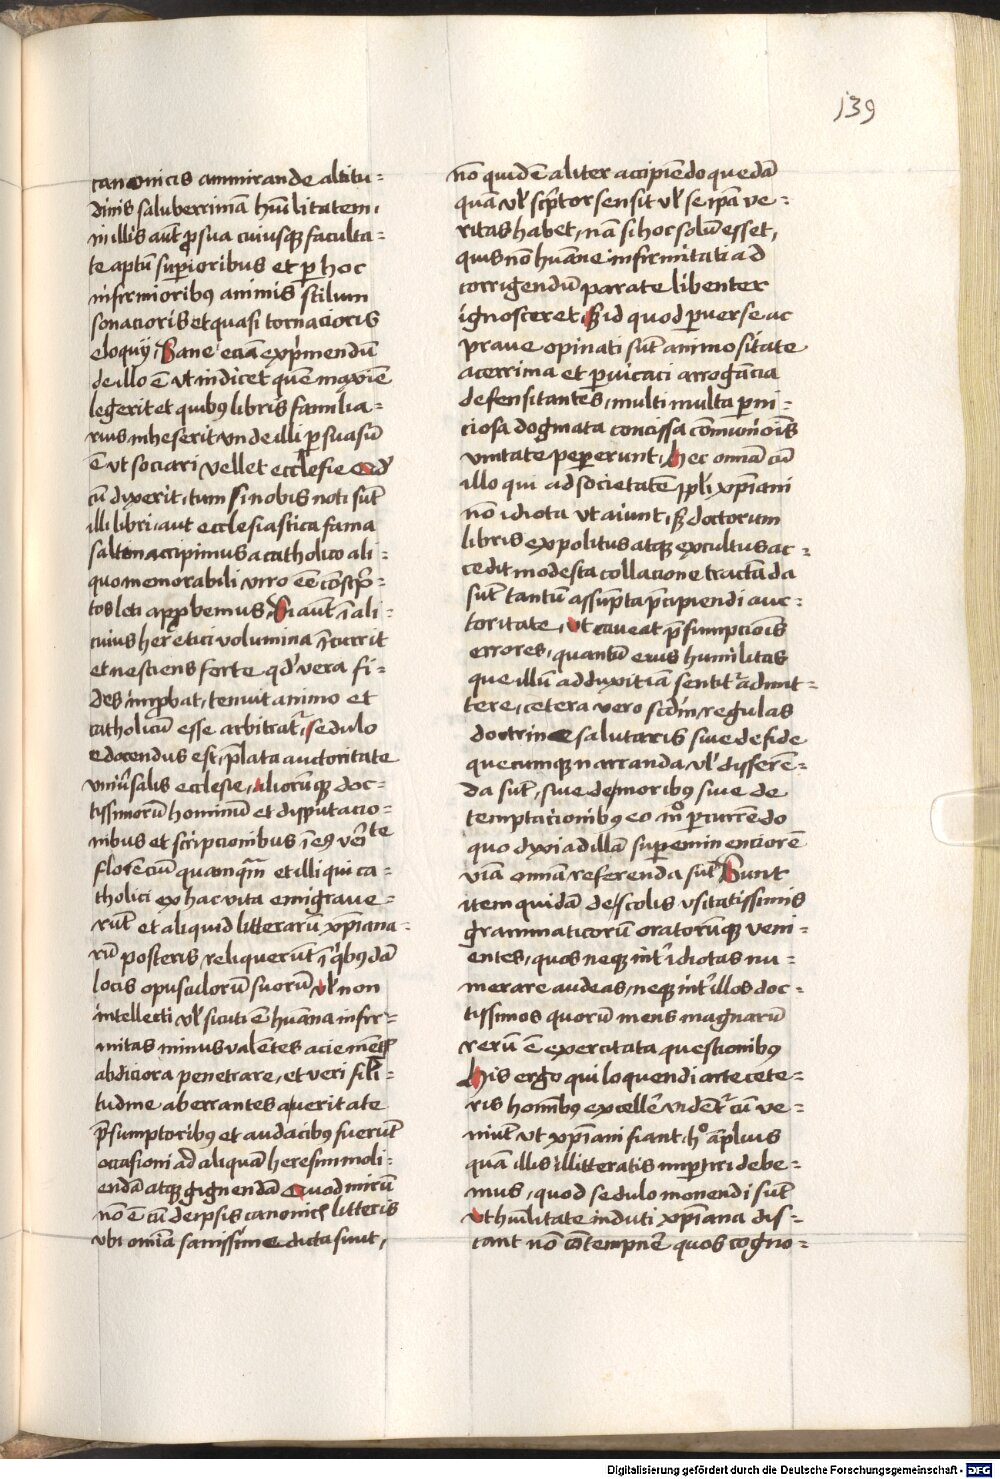 139
canonicis ammirande altitu=
dinis saluberrimā hūilitatem,
in illis aūt ꝓ sua cuiusqꝫ faculta=
te aptū suꝑioribus et ꝑ hoc
infirmioribꝯ animis stilum
sonacioris et quasi tornacioris
eloquij, Sane eciā exp̄mendū
de illo ē vt indicet quē maxīe
legerit et quibꝯ libris familia=
rius inheserit vnde illi ꝑsuasū
ē vt sociari vellet ecclesie qd̄
cū dixerit, tum si nobis noti sūt
illi libri, aut ecclesiastica fama
saltem accipimus a catholico ali=
quo memorabili viro eē cōsc̄p=
tos leti apꝓbemus, Si aūt ī ali=
cuius heretici volumina īcurrit
et nesciens forte qd̓ vera fi=
des īnꝓbat, tenuit animo et
catholicū esse arbitrat᷑, sedulo
edocendus est, p̄lata auctoritate
vniūsalis ecclesie, aliorūqꝫ doc=
tissimorū hominū et disputacio=
nibus et scripcionibus ī eꝯ v̄itate
florēciū quamqͣm et illi qui ca=
tholici ex hac vita emigraue=
rūt et aliquid litterarū xp̄iana=
rū posteris reliquerūt ī q̇bꝯdā
locis opusculorū suorū vl̓ non
intellecti vl̓ sicuti ē hūana infir=
mitas minus valētes acie mētꝭ
abdiciora penetrare, et veri sil̓i=
tudine aberrantes a veritate
p̄sumptoribꝯ et audacibꝯ fuerūt
occasioni ad aliquā heresim moli=
endā atqꝫ gignendā Quod mirū
nō ē cū de ip̄sis canonicꝭ litteris
vbi om̄ia sanissīme dicta sunt,
nō quidē aliter accipiēdo quedā
quā vl̓ sc̄ptor sensit vl̓ se ip̄a ve=
ritas habet, nā si hoc solū esset,
quis nō hūane infirmitati ad
corrigendū parate libenter
ignosceret, sꝫ id quod ꝑuerse ac
praue opinati sūt animositate
acerrima et ꝑuicaci arrogācia
defensitantes, multi multa ꝑni=
ciosa dogmata concissa cōmuniōis
vnitate peꝑerunt, Hec om̄ia cū
illo qui ad societatē pp̄li xp̄iani
nō idiota vt aiunt, sꝫ doctorum
libris expolitus atqꝫ excultus ac=
cedit modesta collacione tractāda
sūt tantū assūpta p̄cipiendi auc=
toritate, vt caueat p̄sumpciōis
errores, quantū eius humilitas
que illū adduxit iā sentit᷑ admit=
tere, cetera vero scd̄m regulas
doctrine salutaris siue de fide
quecumqꝫ narranda vl̓ differē=
da sūt, siue de moribꝯ siue de
temptacionibꝯ eo mͦ ꝑcurrēdo
quo dixi ad illā suꝑeminenciorē
viā om̄ia referenda sūt, Sunt
item quidā de scolis vsitatissimis
grammaticorū oratorūqꝫ veni=
entes, quos neqꝫ int᷑ idiotas nu=
merare audeas, neqꝫ int᷑ illos doc=
tissimos quorū mens magnarū
rerū ē exercitata questionibꝯ
His ergo qui loquendi arte cete=
ris homībꝯ excelle᷑ vidēt᷑ cū ve=
niūt vt xp̄iani fiant, hͦ amplius
quā illis illitteratis imꝑtiri debe=
mus, quod sedulo monendi sūt
vt hūilitate induti xp̄iana dis=
cant nō cōtempnē quos cogno=
Digitalisierung gefördert durch die Deutsche Forschungsgemeinschaft - DFG